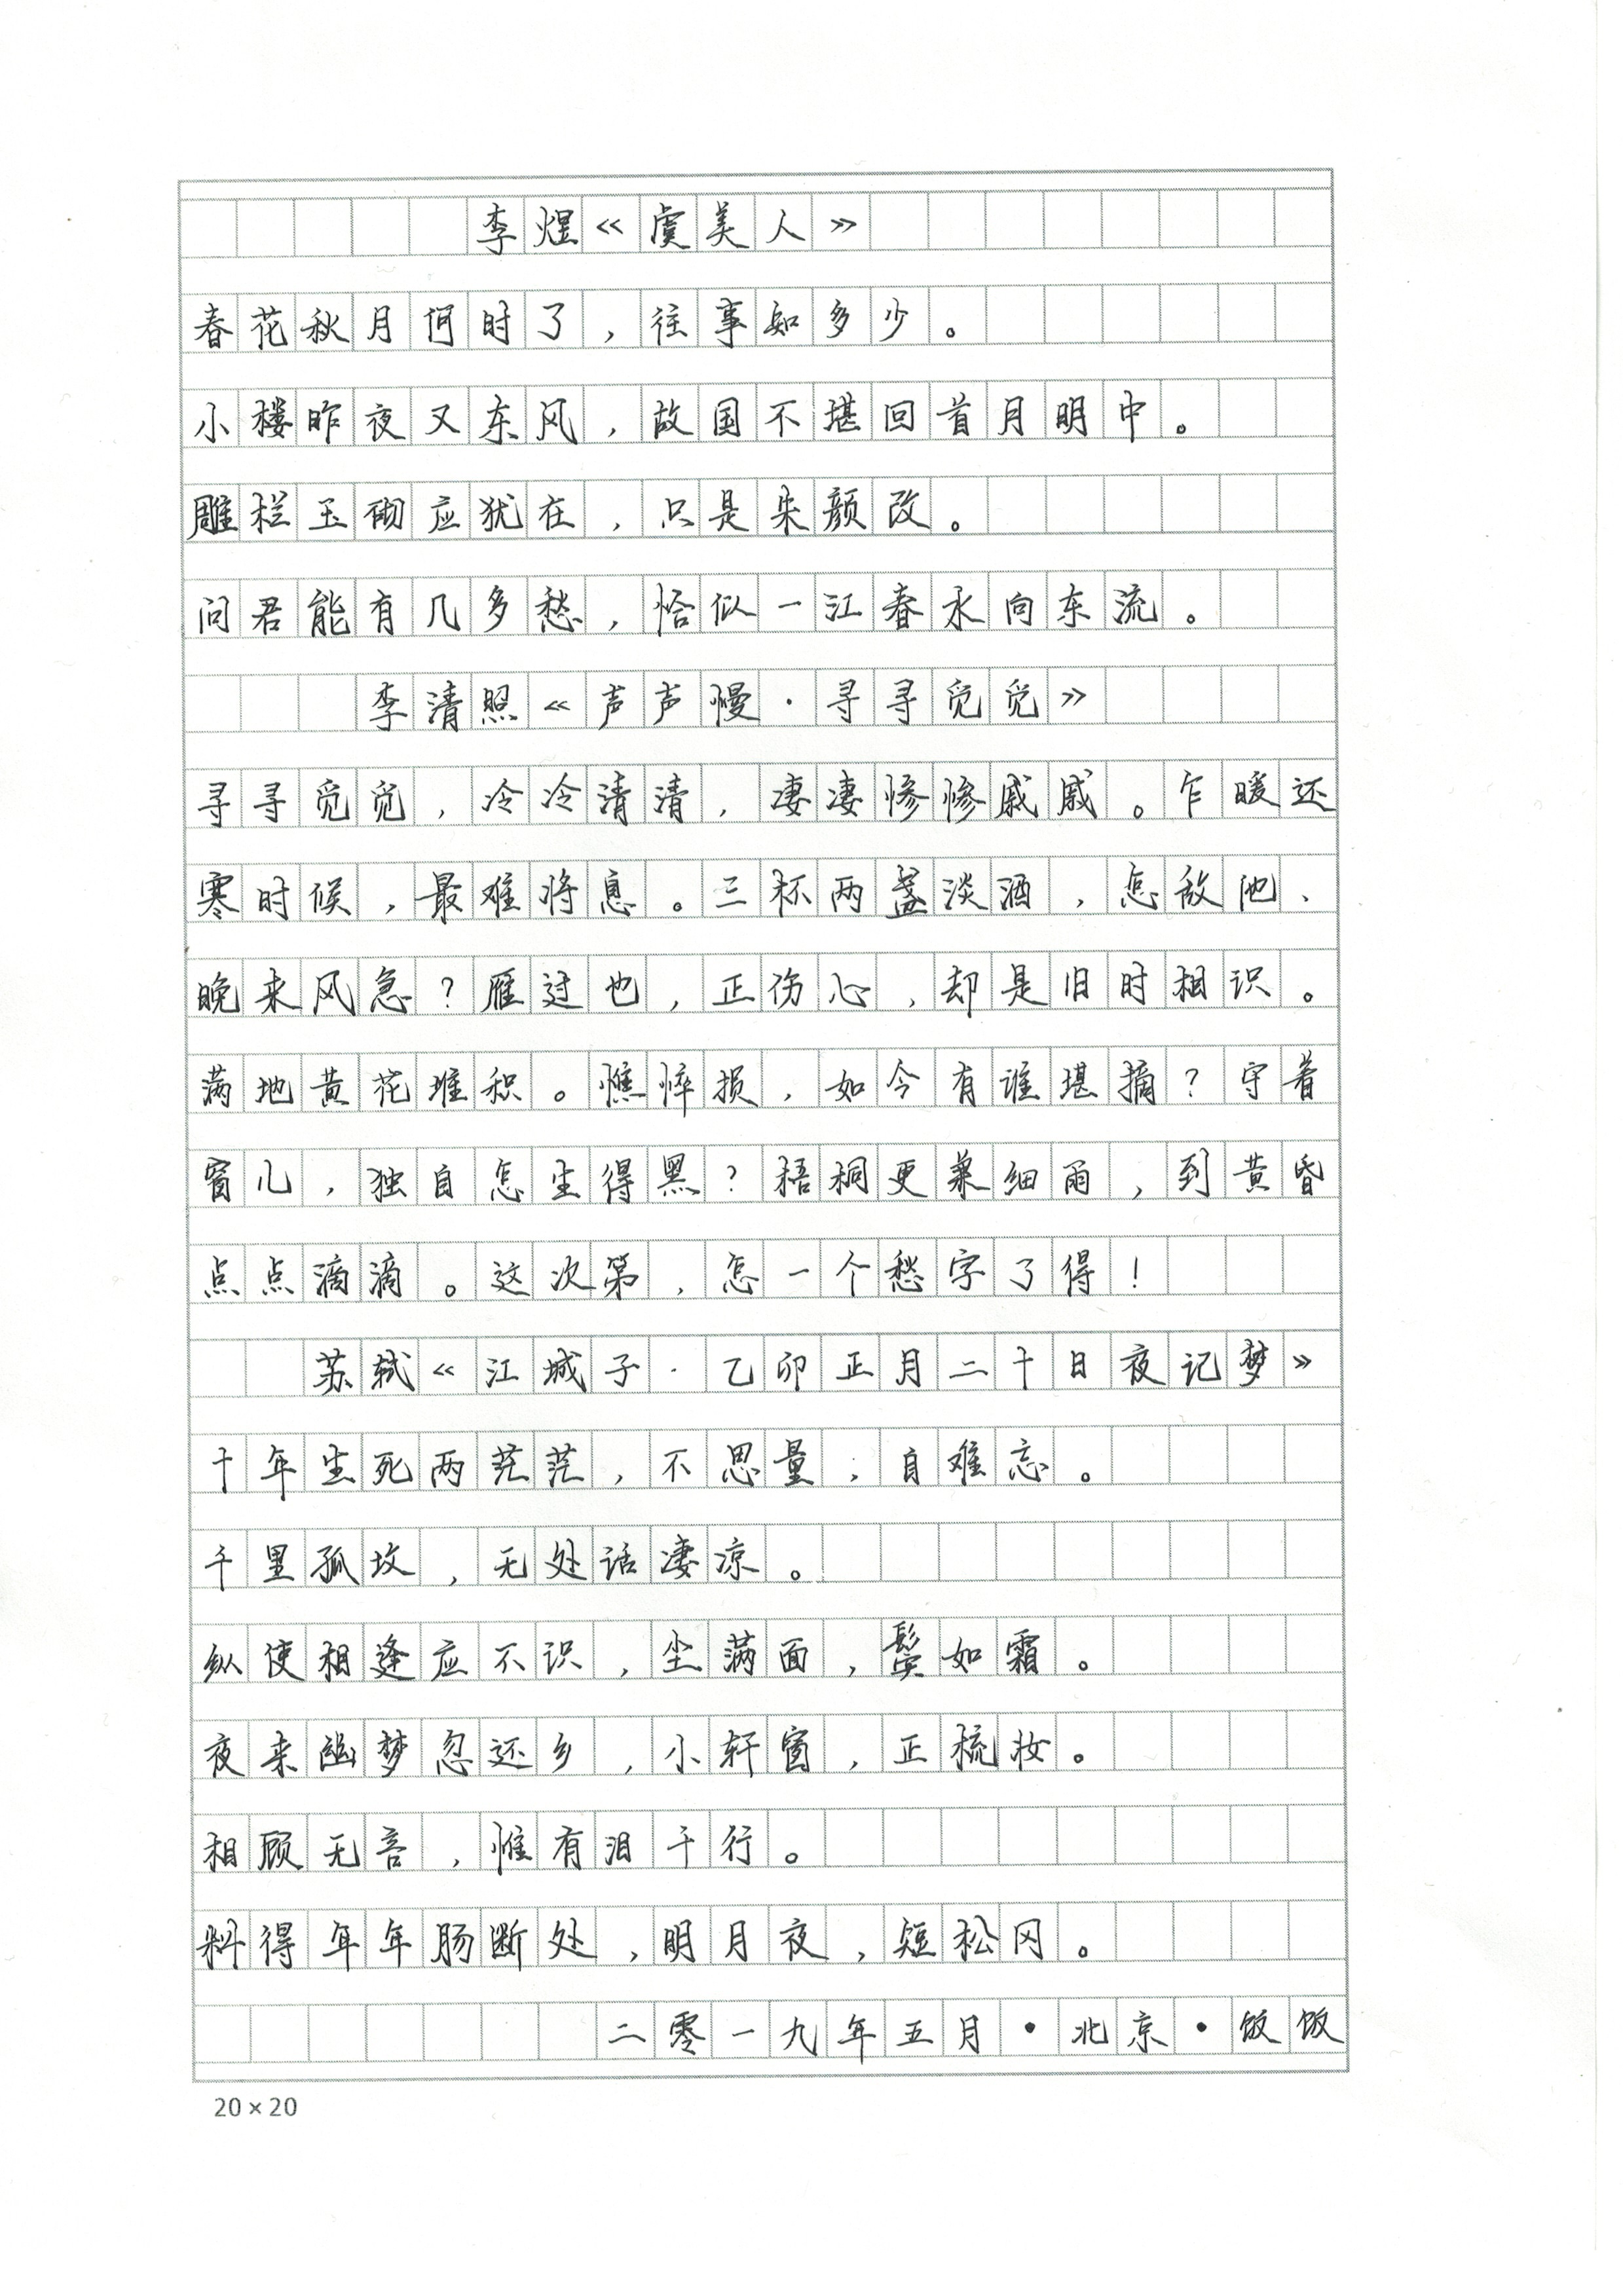 李煜《虞美人》
春花秋月何时了，往事知多少。
小楼昨夜又东风，故国不堪回首月明中。
雕栏玉砌应犹在，只是朱颜改。
问君能有几多愁，恰似一江春水向东流。
李清照《声声慢·寻寻觅觅》
寻寻觅觅，冷冷清清，凄凄惨惨戚戚。乍暖还
寒时候，最难将息。三杯两盏淡酒，怎敌他、
晚来风急？雁过也，正伤心，却是旧时相识。
满地黄花堆积。憔悴损，如今有谁堪摘？守着
窗儿，独自怎生得黑？梧桐更兼细雨，到黄昏
点点滴滴。这次第，怎一个愁字了得！
苏轼《江城子·乙卯正月二十日夜记梦》
十年生死两茫茫，不思量，自难忘。
千里孤坟，无处话凄凉。
纵使相逢应不识，尘满面，鬓如霜。
夜来幽梦忽还乡，小轩窗，正梳妆。
相顾无言，惟有泪千行。
料得年年肠断处，明月夜，短松冈。
二零一九年五月·北京·饭饭
20×20